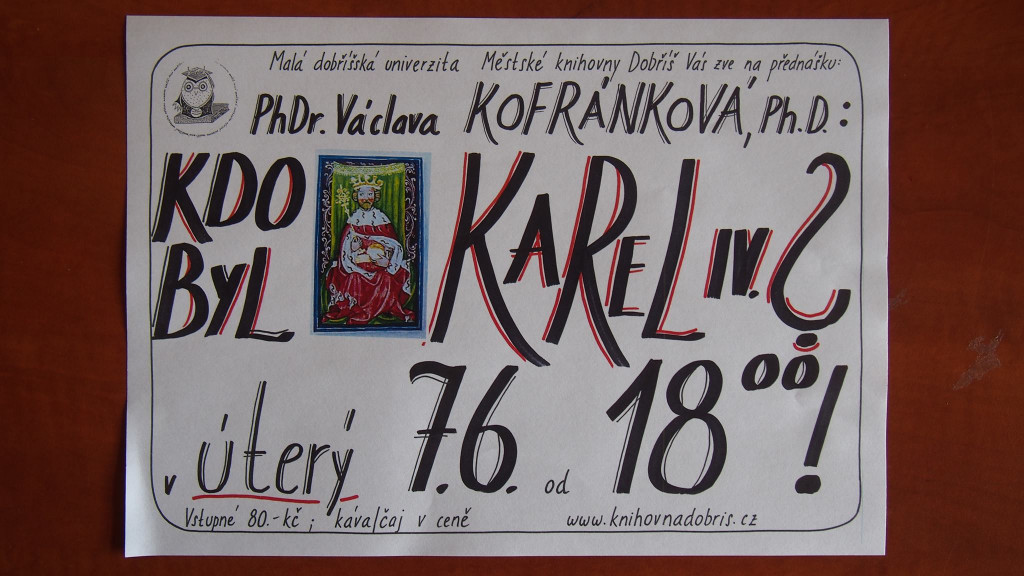 Malá dobříšská univerzita Městské knihovny Dobříš Vás zve na přednášku:
PhDr. Václava KOFRÁNKOVÁ, Ph.D.:
KDO BYL KAREL IV.?
v úterý 7.6. od 18⁰⁰!
Vstupné 80.-kč ; káva/čaj v ceně www.knihovnadobris.cz